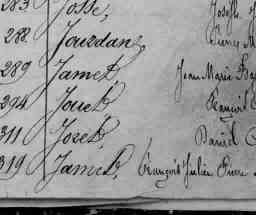 283 Josse, Joseph
288 Jourdan, Pierre M
289 Jamet, Jean Marie
294 Jouet, François
311 Joret, Daniel
319 Jamet, François Julien Pierre